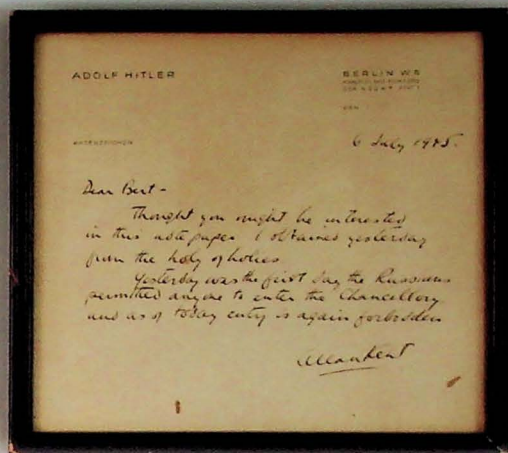 ADOLF HITLER
BERLIN W8
6 July 1945.
Dear Bert -
Thought you might be interested
in this note paper I obtained yesterday
from the holy of holies
Yesterday was the first day the Russians
permitted anyone to enter the Chancellory
and as of today entry is again forbidden